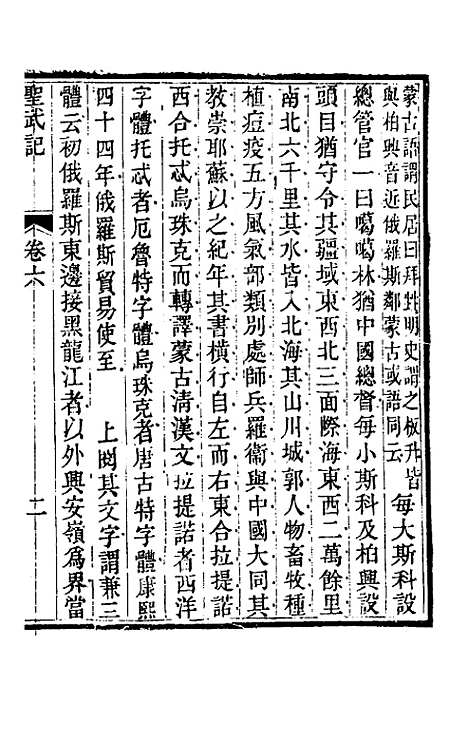 蒙古語謂民居曰拜牲明史謂之板升皆
與柏興音近俄羅斯鄰蒙古或語同云
每大斯科設
總管官一曰噶噶林猶中國總督每小斯科及柏興設
頭目猶守令其疆域東西北三面際海東西二萬餘里
南北六千里其水皆入北海其山川城郭人物畜牧種
植痘疫五方風氣部類別處師兵羅衞與中國大同其
教崇耶蘇以之紀年其書橫行自左而右東合拉提諾
西合托忒烏珠克而轉譯蒙古清漢文拉提諾者西洋
字體托忒者厄魯特字體烏珠克者唐古特字體康熙
四十四年俄羅斯貿易使至 上閱其文字謂兼三
體云初俄羅斯東邊接黑龍江者以外興安嶺為界當
聖武記
卷六
二